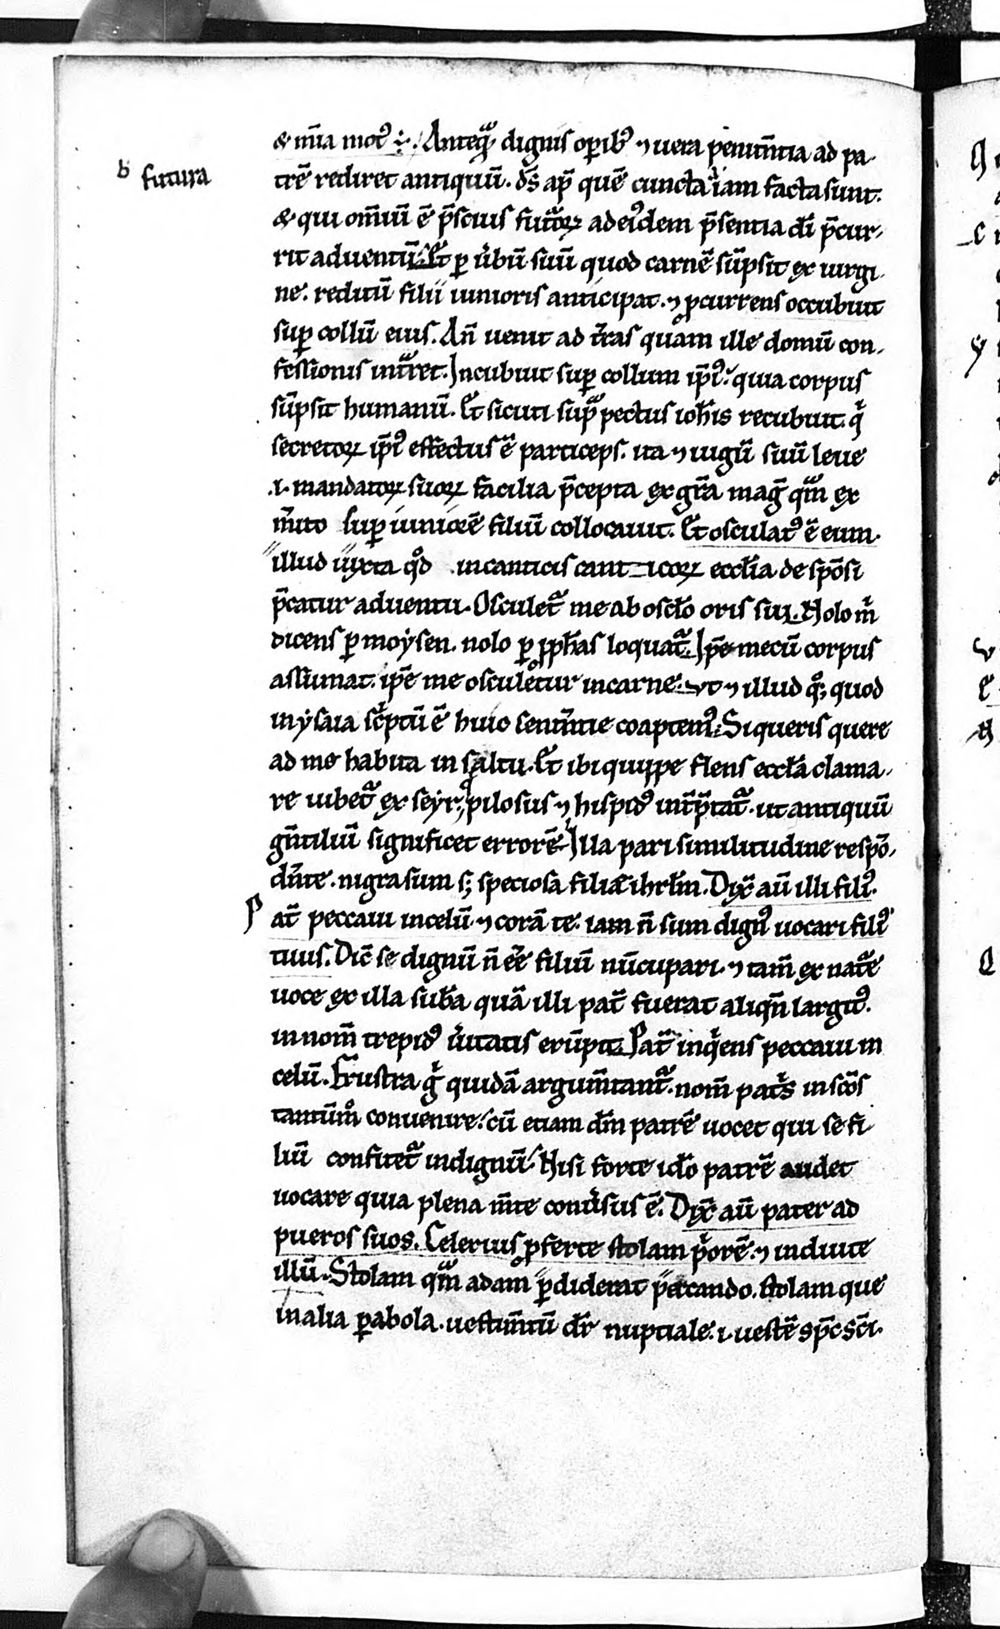 & mīa mot᷒ ÷. Anteqͣ dignis oꝑib᷒ ⁊ uera penitn̄tia ad pa-
b futura
trē rediret antiquū. ds̄ ap̄ quē cuncta iam facta sunt.
& qui om̄iū ē p̄scius futoꝝ ad ei᷒dem p̄sentia dī p̄cur-
rit aduentū. Et ꝑ ūbū suū quod carnē sūpsit ex uirgi-
ne. reditū filii iunioris anticipat. ⁊ p̱currens occubuit
suꝑ collū eius. An̄ uenit ad t̄ras quam ille domū con-
fessionis int̄ret. Incubuit suꝑ collum ip̄i᷒. quia corpus
sūpsit humanū. Et sicuti supͣ pectus ioh̄is recubuit. qͥ
secretoꝝ ip̄i᷒ effectus ē particeps. ita ⁊ iugū suū leue
.i. mandatoꝝ suoꝝ facilia p̄cepta ex gr̄a mag̅ qͣm ex
m̄ito suꝑ iuniorē filiū collocauit. Et osculat᷒ ē eum.
illud iuxta qd̊ in canticis canticoꝝ eccl̄ia de spōsi
p̄catur aduentu. Osculet᷑ me ab oscl̄o oris sui. Nolo mͥ
dicens ꝑ moysen. nolo ꝑ ꝓph̄as loquat᷑. Ip̄e mecū corpus
assumat. ip̄e me osculetur in carne. vt ⁊ illud qꝫ quod
in ysaia scͥptū ē huic sentn̄tie coaptem᷒. Si queris quere
ad me habita in saltu. Et ibi quippe flens eccl̄a clama-
re iubet᷑ ex seyr. pilosus ⁊ hispid᷒ int̄p̄tat᷑. ut antiquū
gn̄tiliū significet errorē. Illa pari similitudine respō-
dn̄te. nigra sum sꝫ speciosa filia ihrl̄m. Dix̄ aū illi fili᷒.
P at̄ peccaui in celū ⁊ corā te. iam n̄ sum dign᷒ uocari fili᷒
tuus. Dic̄ se dignū n̄ ēe filiū nūcupari. ⁊ tam̄ ex nat̄e
uoce ex illa sub̄a quā illi pat̄ fuerat aliqn̄ largit᷒.
in nom̄ trepid᷒ ūitatis erūpit. Pat̄ inqͥens peccaui in
celū. Frustra gͥ quidā argum̄tant᷑. nom̄ patͥs in scōs
tantūm̊ conuenire. cū etiam dm̄ patrē uocet qui se fi-
liū confitet᷑ indignū. Nisi forte id̄o patrē audet
uocare quia plena m̄te conūsus ē. Dix̄ aū pater ad
pueros suos. Celerius ꝓferte stolam pͥorē. ⁊ induite
illū. Stolam qͣm adam ꝑdiderat peccando. stolam que
in alia ꝑabola. uestim̄tū dr̄ nuptiale. i. uestē sp̄c sc̄i.